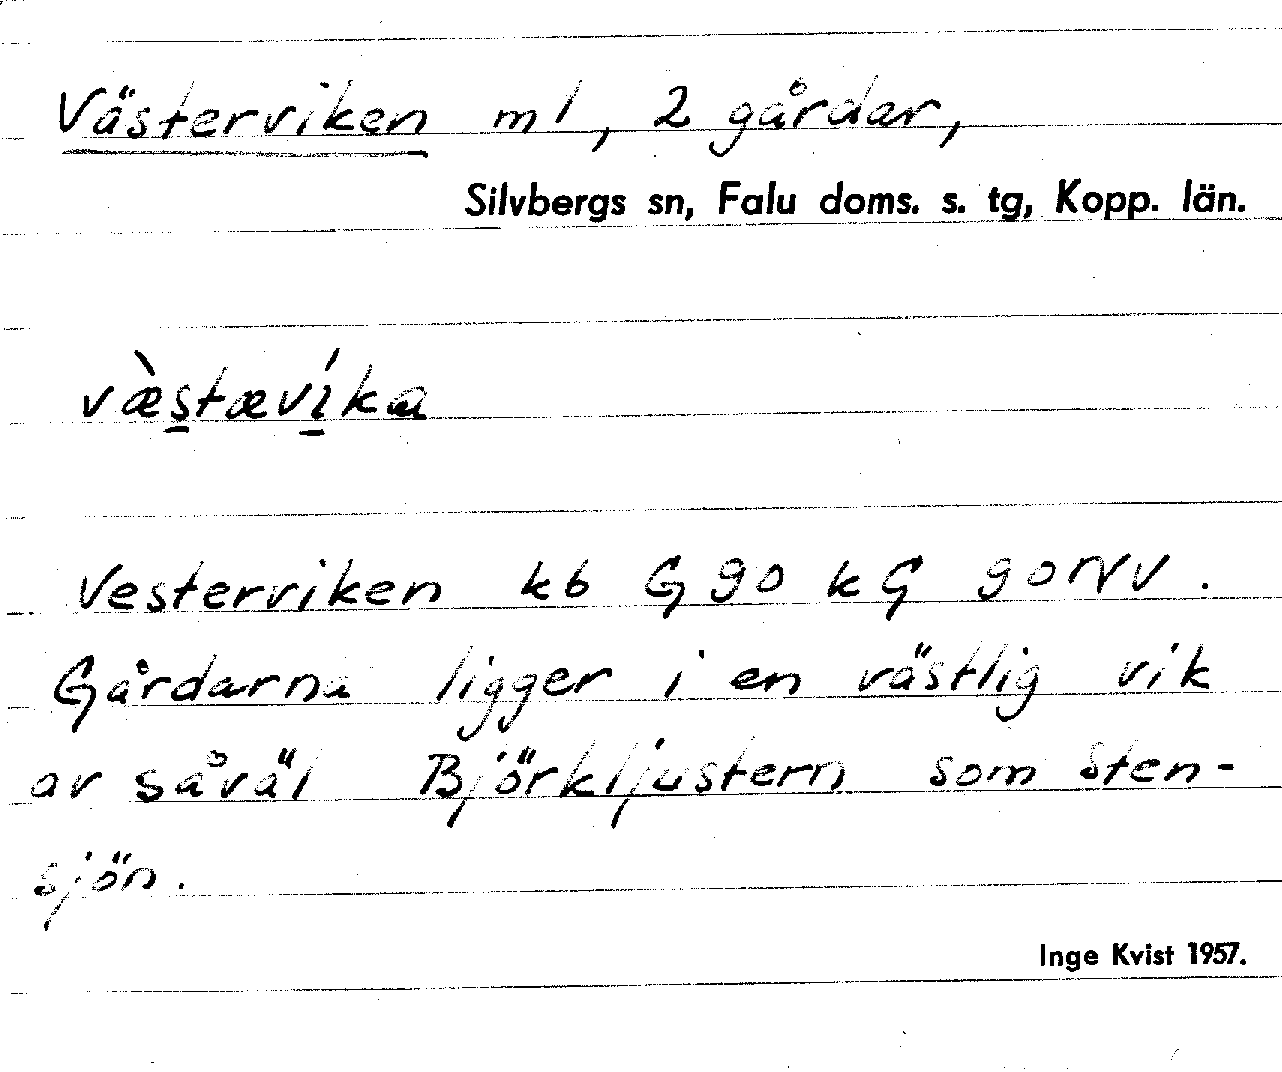 Västerviken ml, 2 gårdar,
Silvbergs sn, Falu doms. s. tg, Kopp. län.
væ̀stævíka
Vesterviken kb G 90 kG 90NV.
Gårdarna ligger i en västlig vik
av såväl Björkljustern som Sten-
sjön.
Inge Kvist 1957.